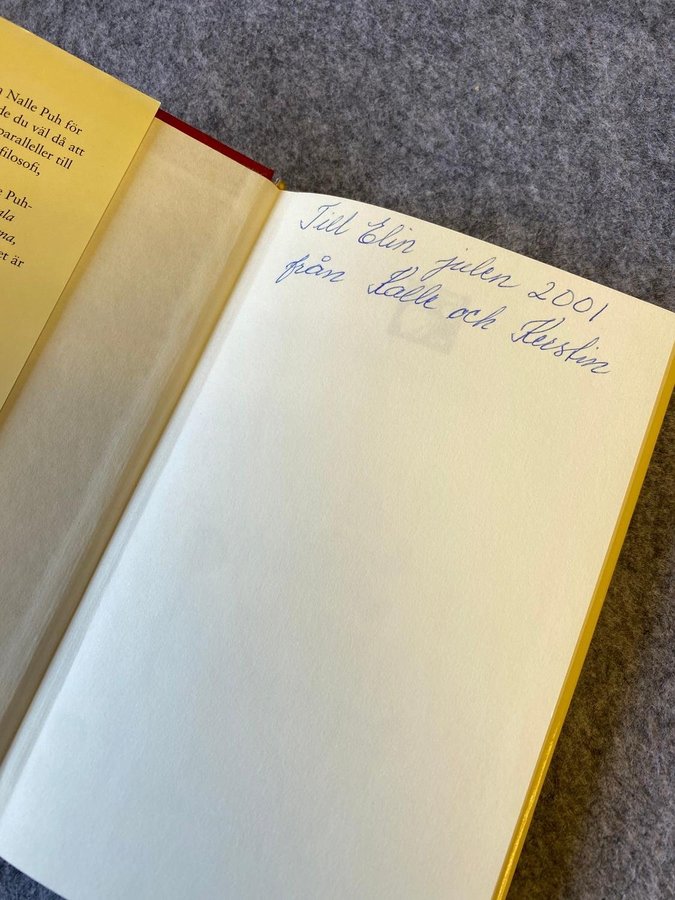 Nalle Puh för
de du väl då att
paralleller till
filosofi,
Puh-
na,
et är
Till Elin julen 2001
från Kalle och Kerstin